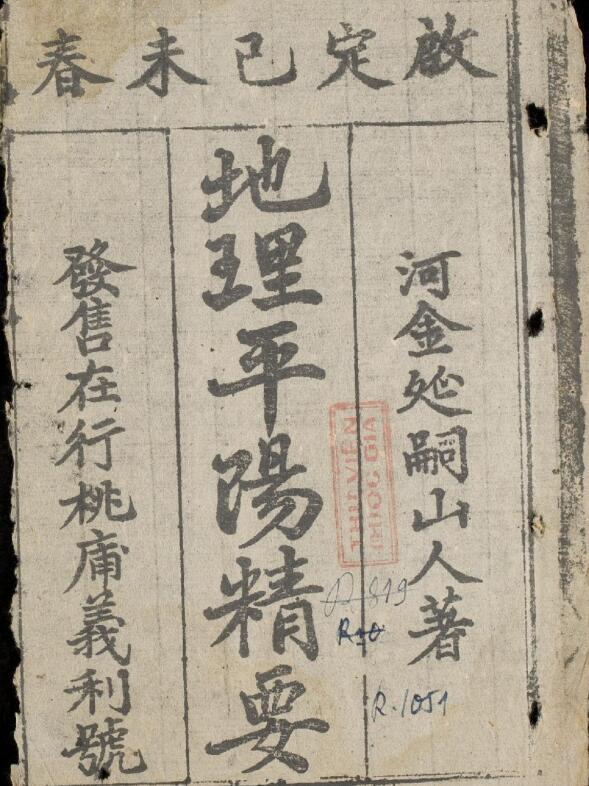 啟定己未春
河金嗣山人著
地理平陽精要
發售在行桃庯義利號
THƯ VIỆN
QUỐC GIA
R.1051